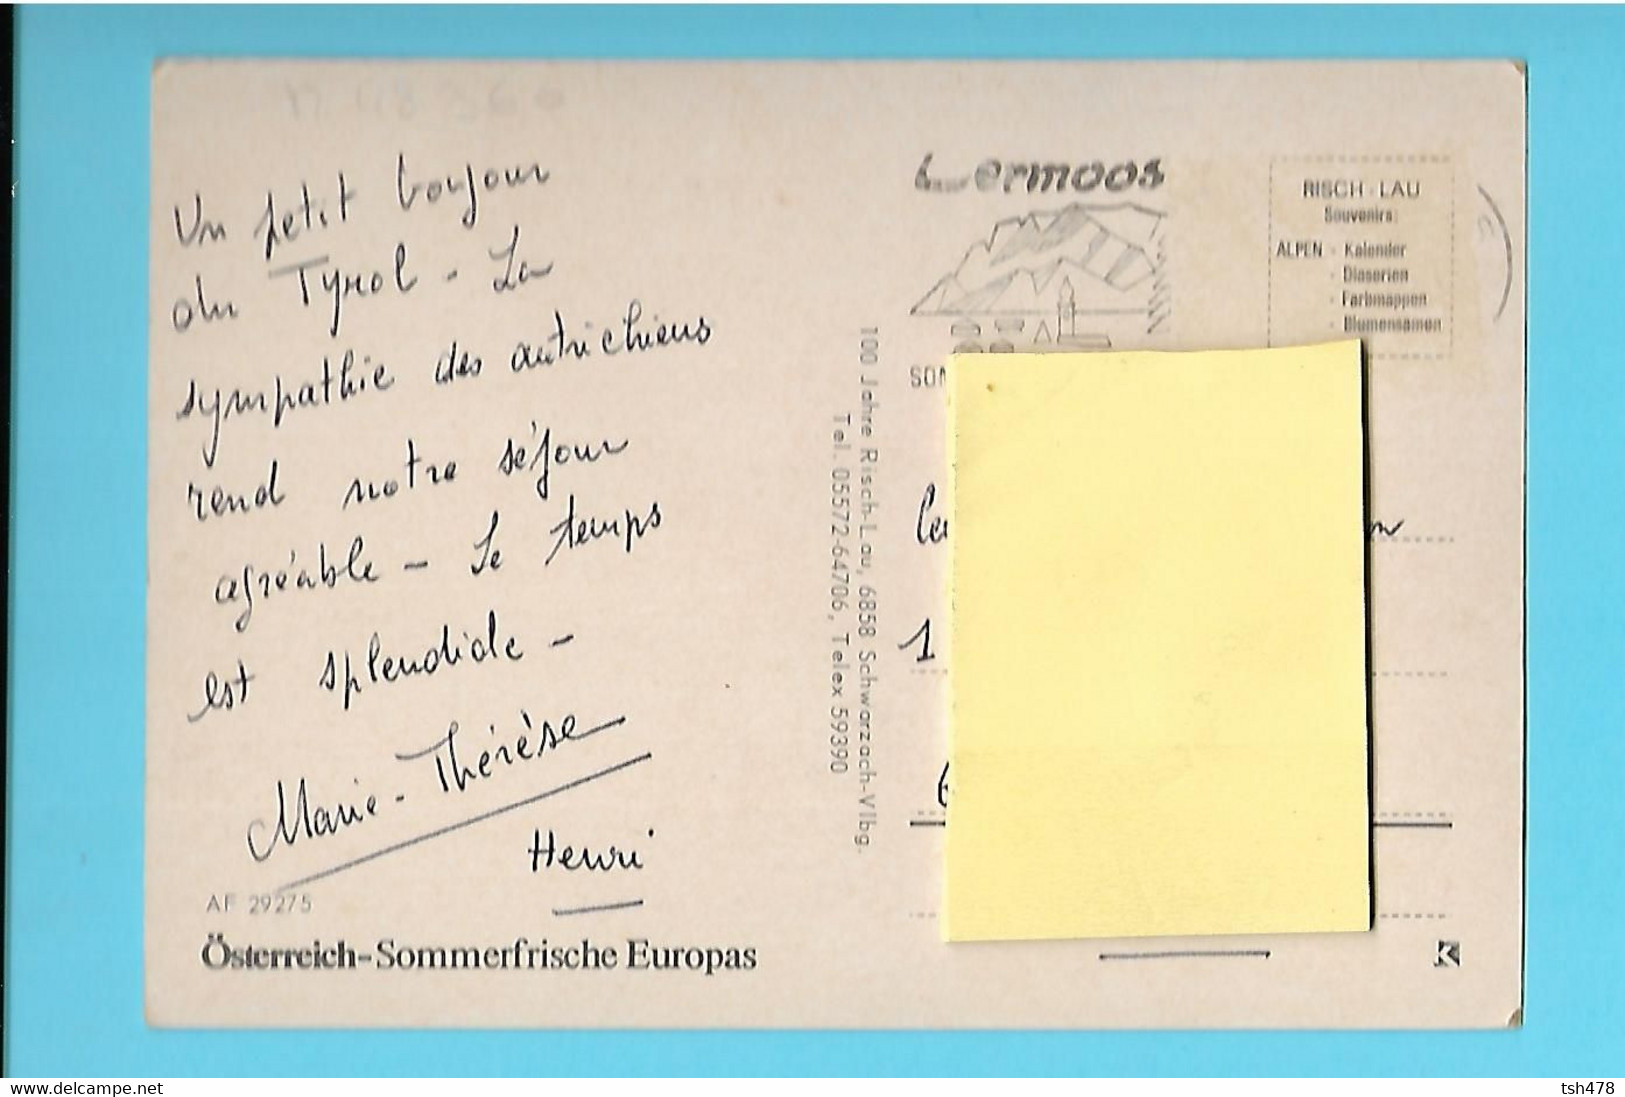 Un petit bonjour
du Tyrol - Le
sympathie des autrichiens
rend notre séjour
agréable - Le temps
est splendide -
Marie-Thérèse
Henri
AF 29275
Österreich-Sommerfrische Europas
100 Jahre Risch-Lau, 6858 Schwarzach-Vlbg.
Tel. 05572-64706, Telex 59390
Lermoos
RISCH-LAU
Souvenirs:
ALPEN - Kalender
- Diaserien
- Farbmappen
- Blumensamen
SOM
1
6
www.delcampe.net
tsh478